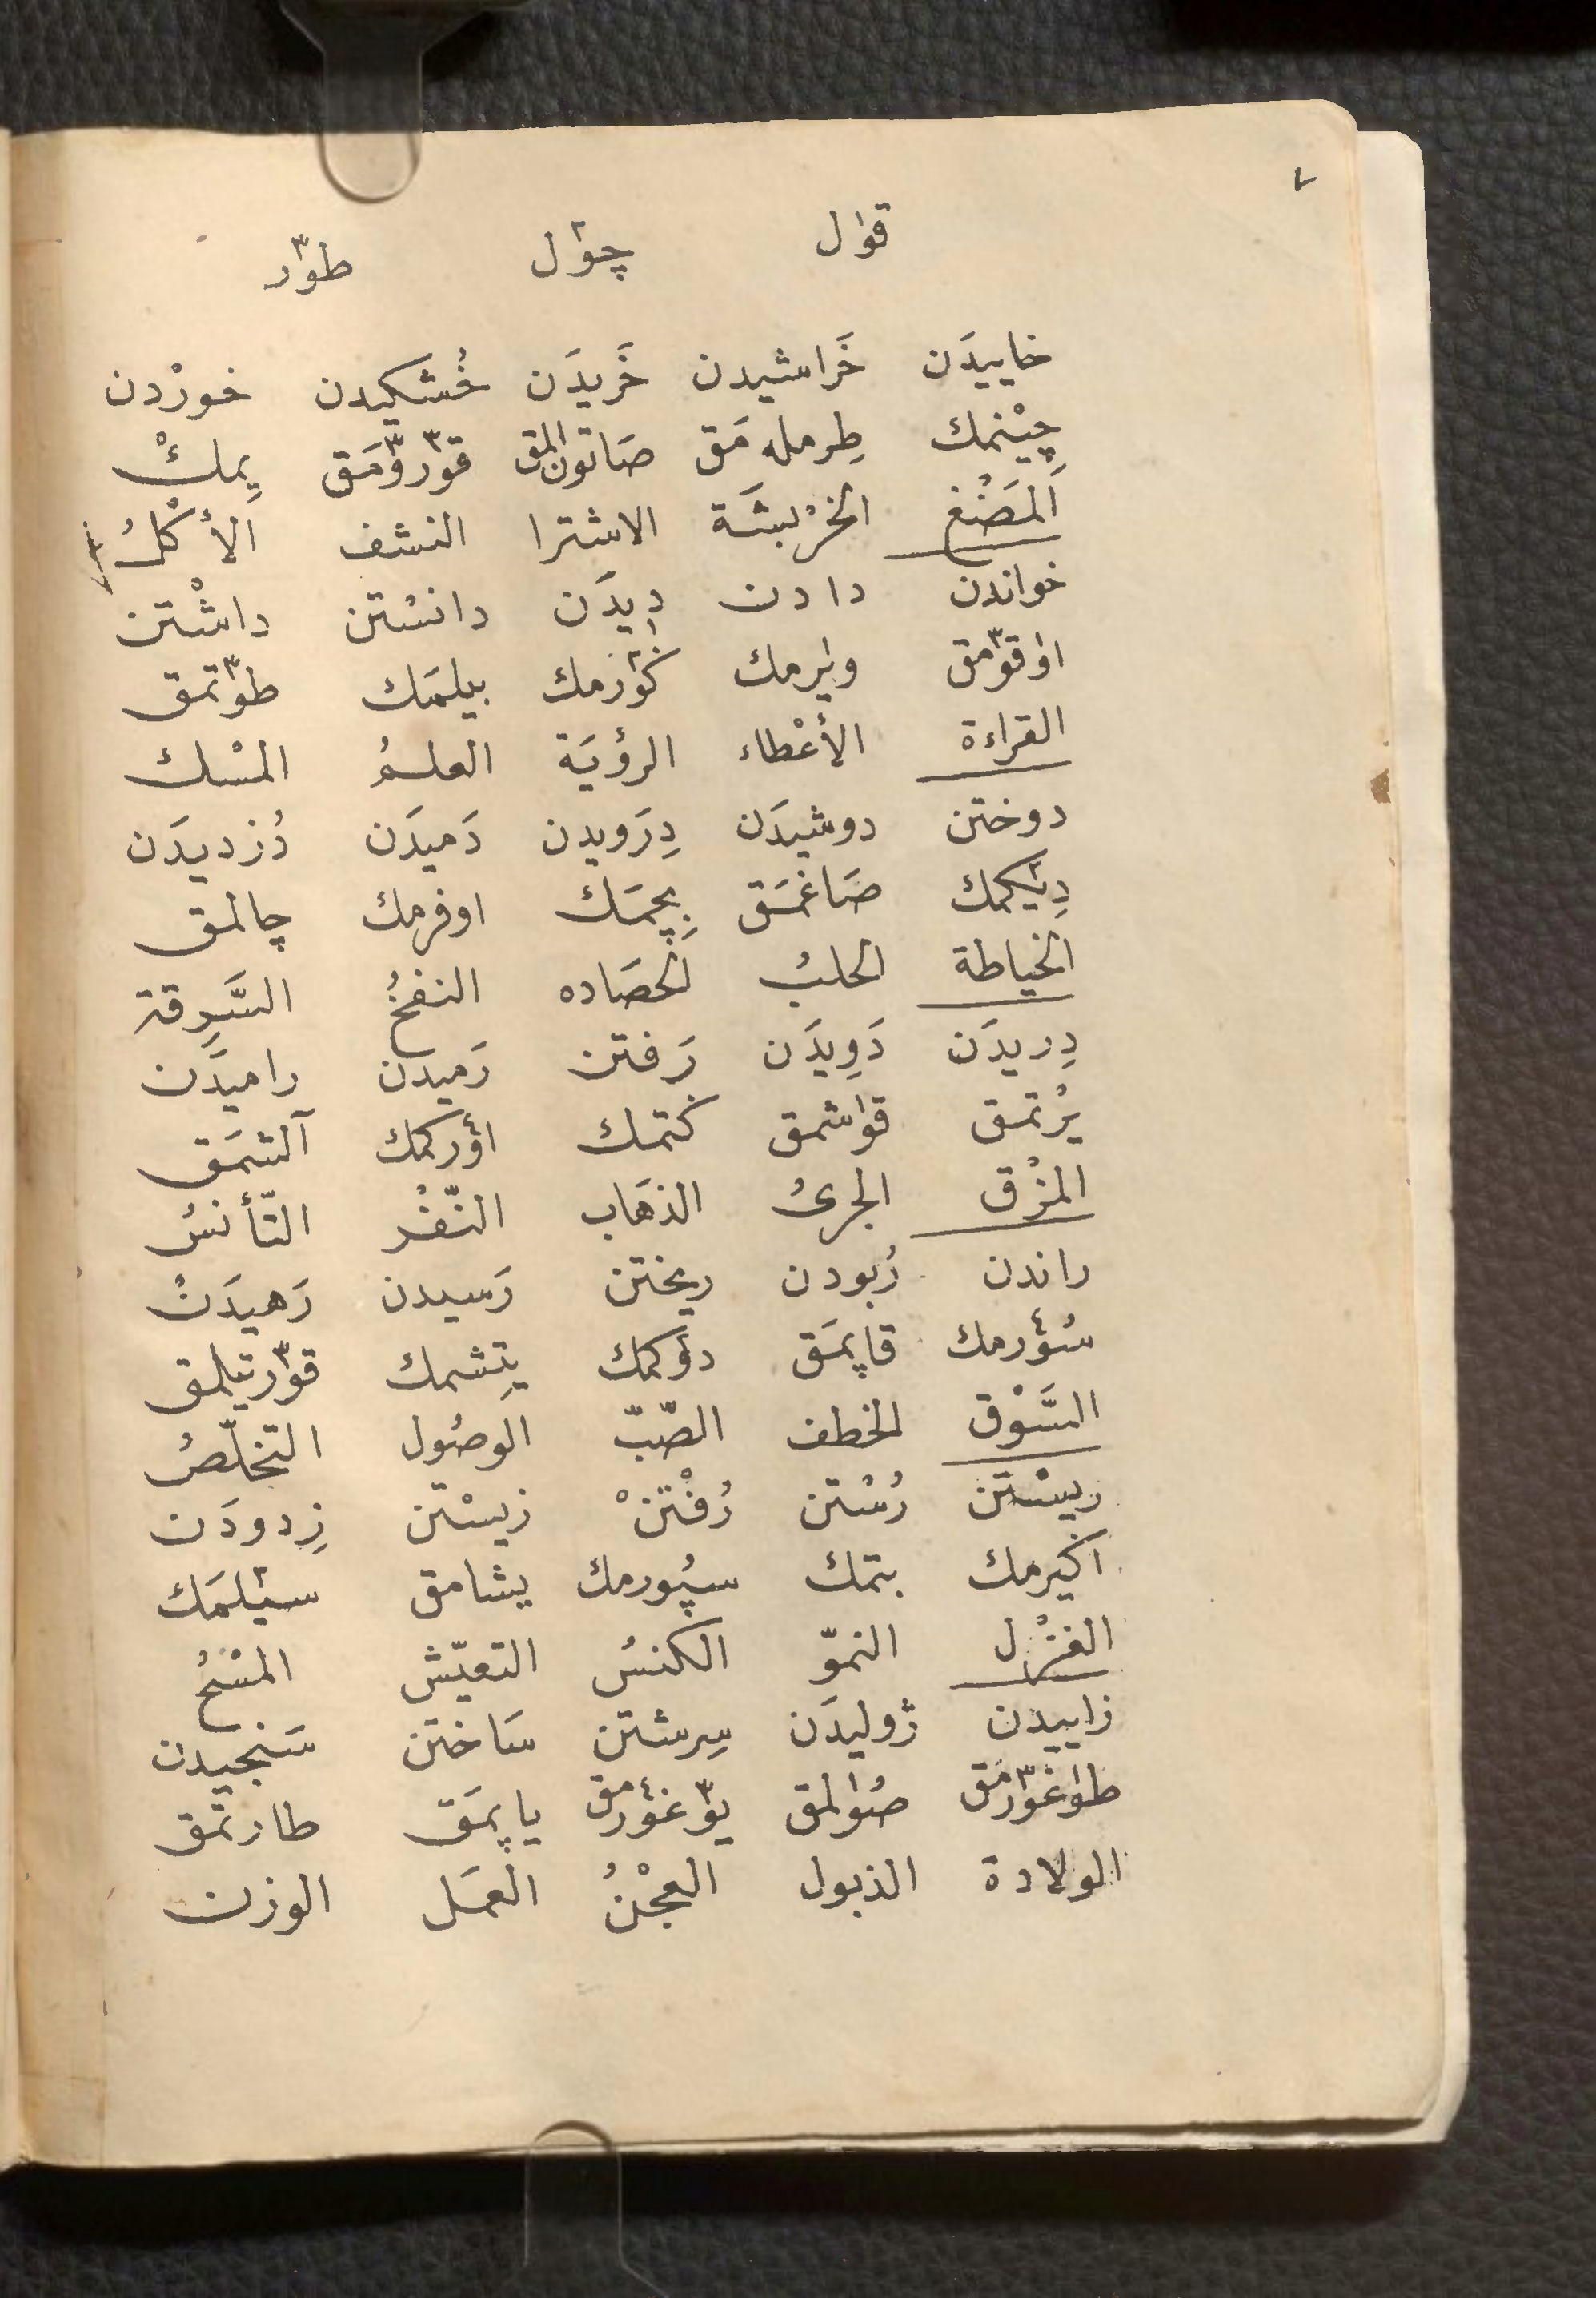 ٧
قوال چو٢ل طو٣ر
خاییدَن خَراشیدن خَریدَن خُشکیدن خورْدن
چِیْنمك طِرمله مَق صَاتون المق قو٣رو٣مَق یِمكْ
اَلمَضْغ الخرْبشَة الاشترا النشف الأكْلُ
خواندن دادن دِیدَن دانسْتن داشْتن
اواقو٣مق ویرمك كو٢رمك بیلمَك طو٣تمق
القراءة الأعْطاء الرؤیَة العلمُ المسْك
دوختن دوشیدَن دِرَویدن دَمیدَن دُزدیدَن
دِی٢كمك صَاغمَق بِچمَك اوفرمك چالمق
الخیاطة الحلبُ الحصَاده النفخُ السَّرِقة
دِریدَن دَوِیدَن رَفتن رَمیدن رامیدَن
یرْتمق قواشمق كتمك اوٴركمك آلشمَق
المزْق الجرىُ الذهَاب النّفْر التّأنسُ
راندن رُبودن ریختن رَسیدن رَهیدَنْ
سُوٴرمك قاپمَق دوٴكمك یتِشمك قو٣رتیلمق
السَّوْق الخطف الصّبّ الوصُول التخلّصُ
ریسْتن رُسْتن رُفْتنْ زیسْتن زِدودَن
اكیرمك بتمك سپُورمك یشامق سی٢لمَك
الغزْل النموّ الكنسُ التعیّش المسْحُ
زاییدن ژولیدَن سِرشتن سَاختن سَنجیدن
طواغو٣رمَق صُوالمق یو٣غوٴرمق یاپمَق طارتمَق
الولادة الذبول العجْنُ العمَل الوزن